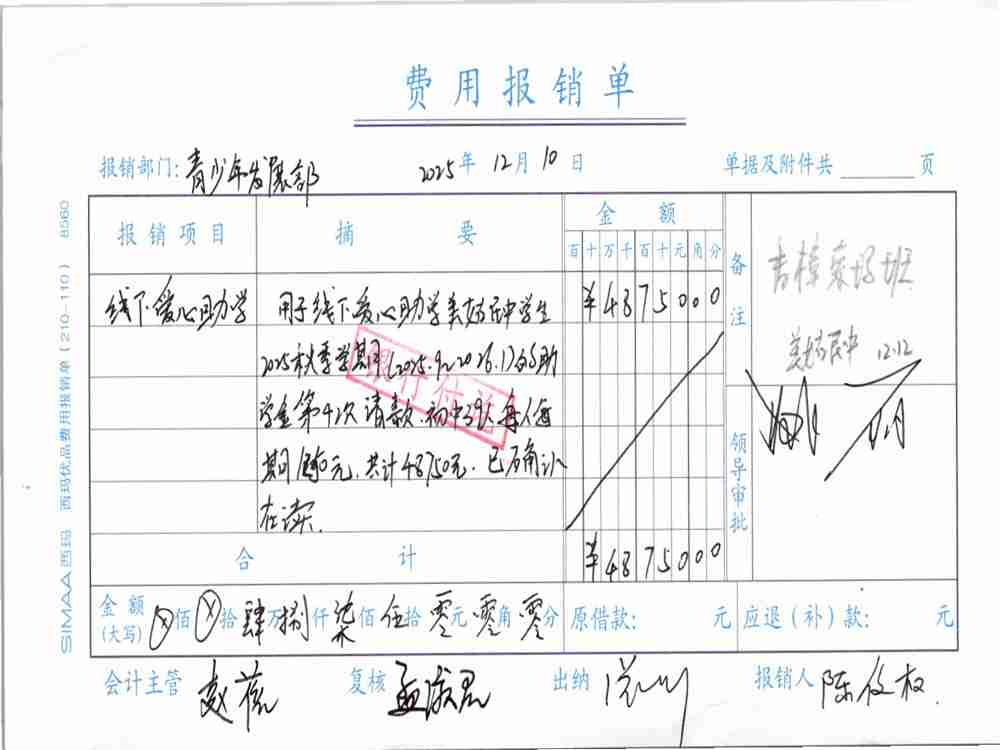 费用报销单
报销部门: 青少年发展部 2025年 12月 10日 单据及附件共 页
报销项目 摘要 金额 备注
百 十 万 千 百 十 元 角 分
线下爱心助学 用于线下爱心助学美姑民中学生 ¥4875000
2025秋季学期(2025.9~2026.1)的助
学金第42次请款.初中39人每人每
期1250元.共计48750元.已确认
在读.
银行付讫
美姑民中 12.12
领导审批
合计 ¥4875000
金额(大写) ⊗佰⊗拾肆万捌仟柒佰伍拾零元零角零分 原借款: 元 应退(补)款: 元
会计主管 赵蓓 复核 孟淑君 出纳 报销人 陈俊权
SIMAA西玛 西玛优品费用报销单(210-110) 8560